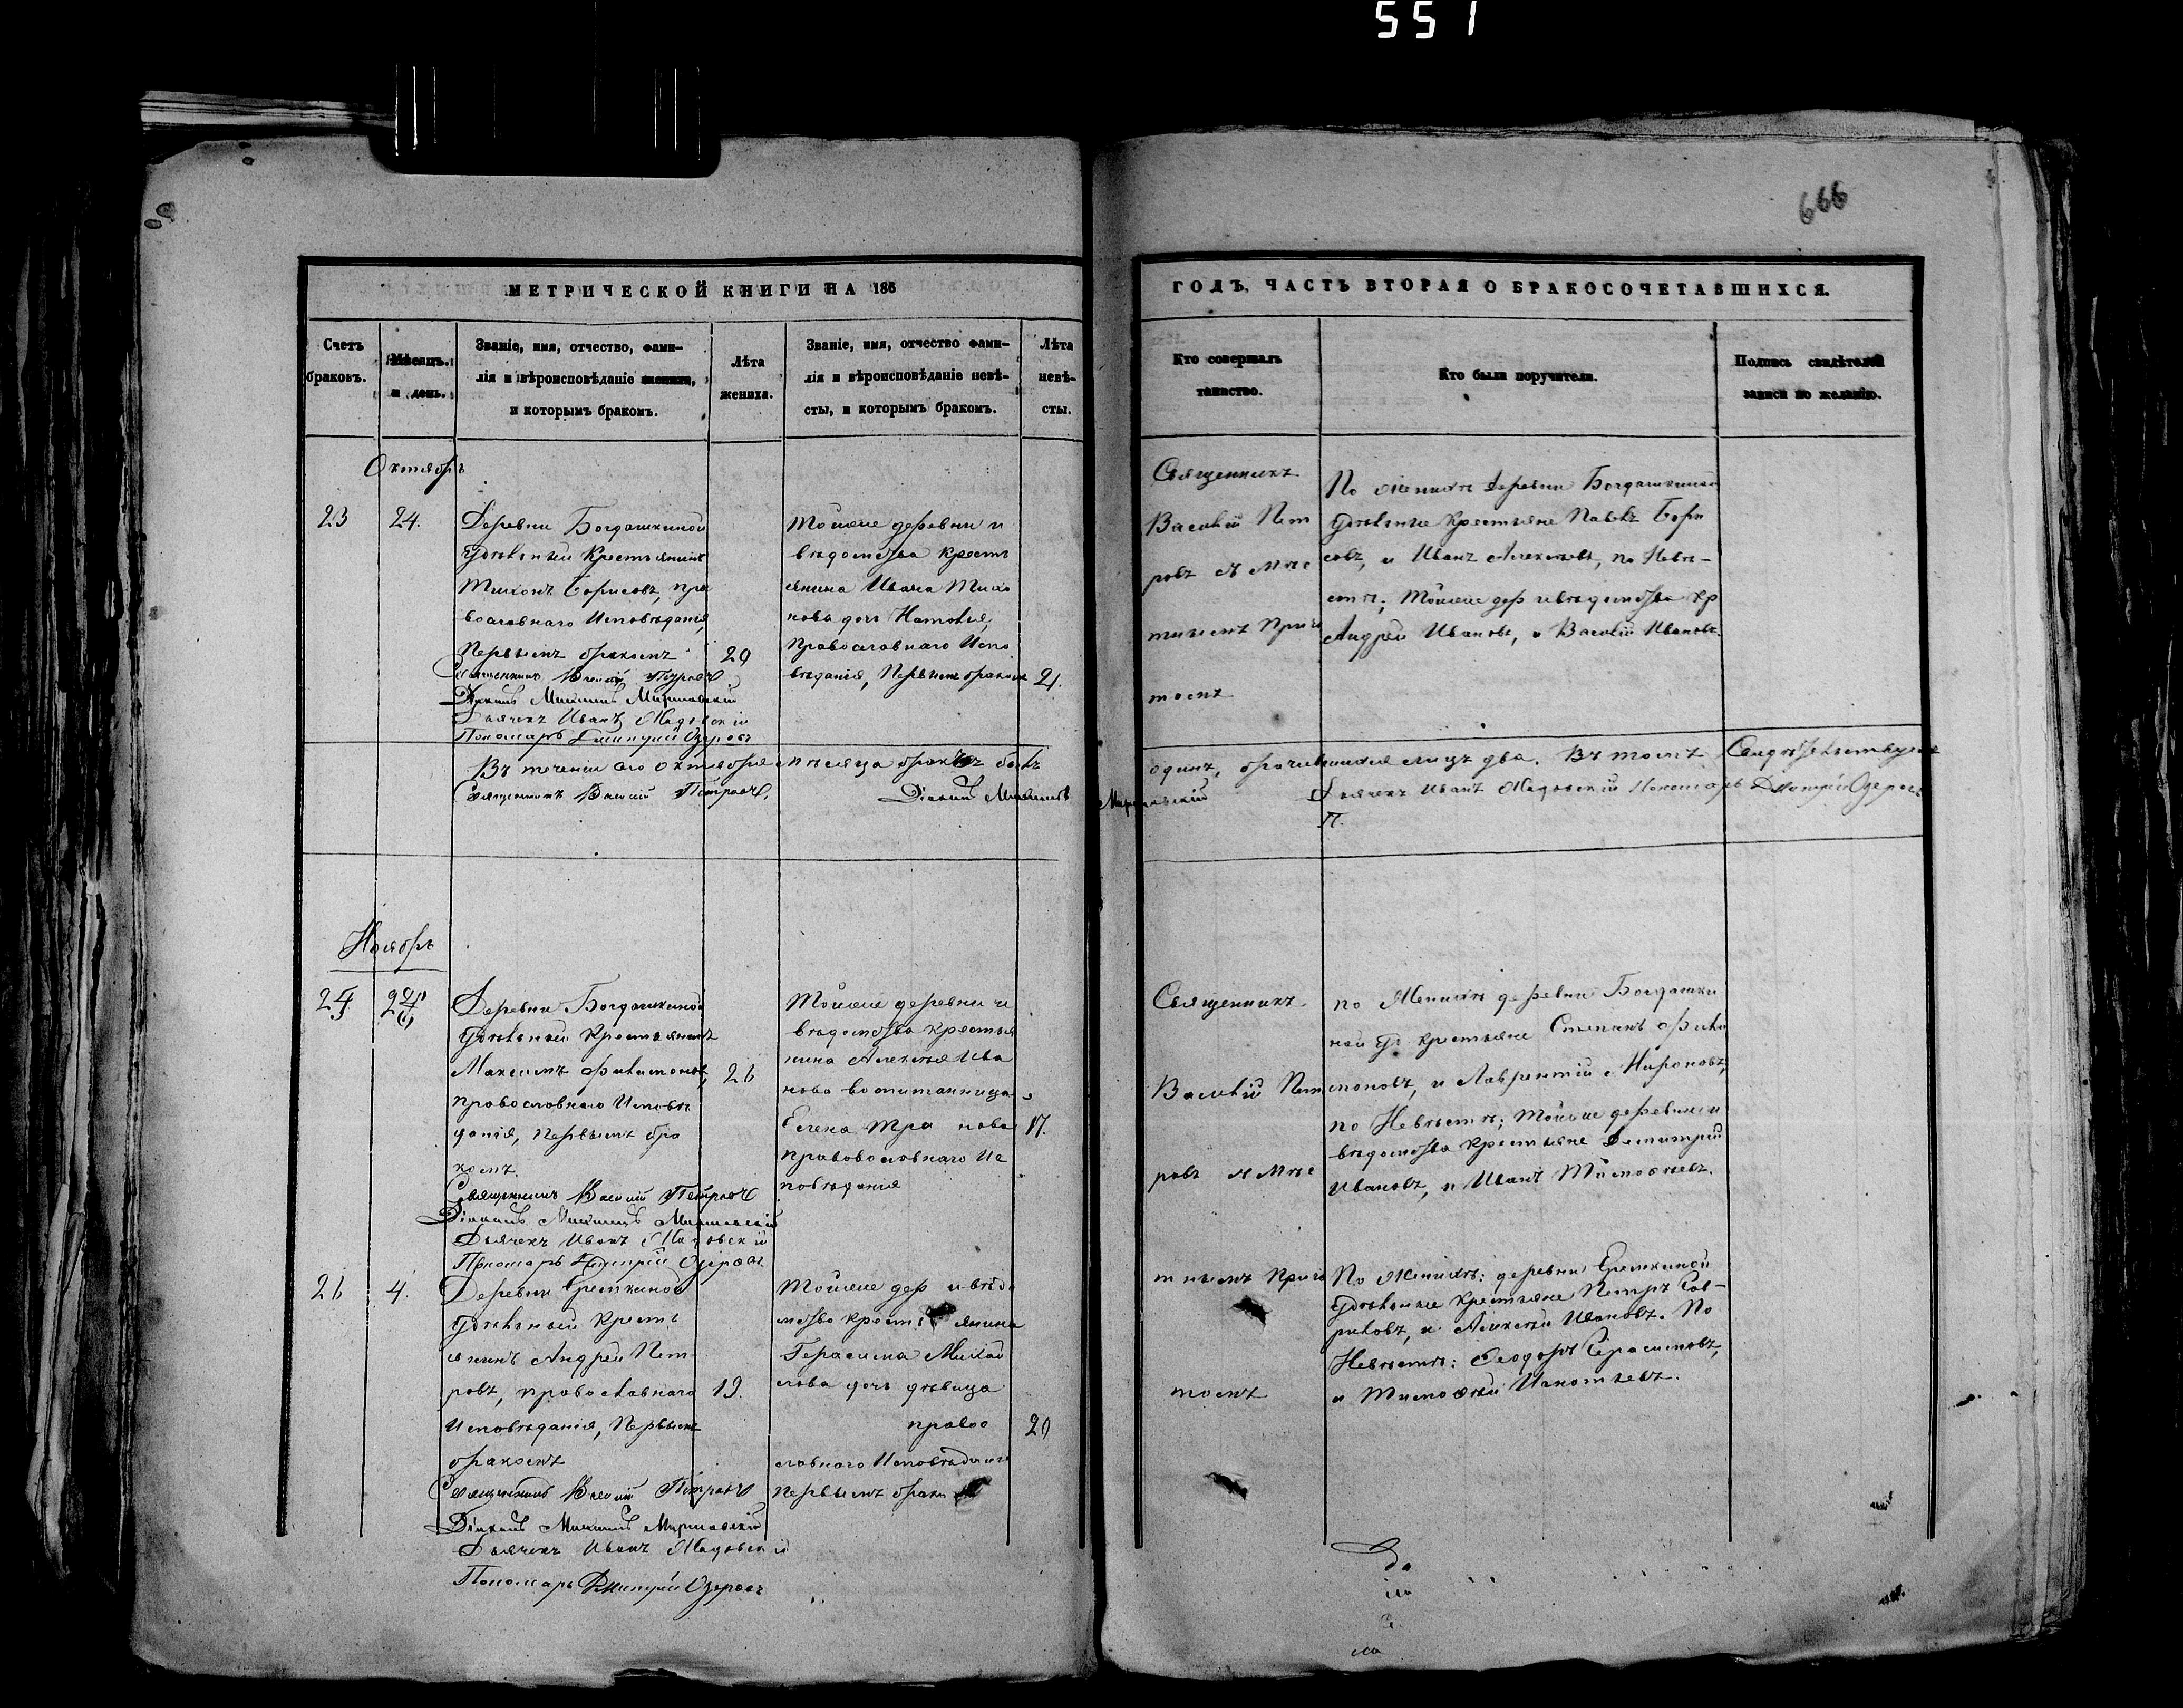 551
666
МЕТРИЧЕСКОЙ КНИГИ НА 186
ГОДЪ, ЧАСТЬ ВТОРАЯ О БРАКОСОЧЕТАВШИХСЯ.
Счетъ
браковъ.
Мѣсяцъ
и день.
Званіе, имя, отчество, фами-
лія и вѣроисповѣданіе жениха,
и которымъ бракомъ.
Лѣта
жениха.
Званіе, имя, отчество фами-
лія и вѣроисповѣданіе невѣ-
сты, и которымъ бракомъ.
Лѣта
невѣ-
сты.
Кто совершалъ
таинство.
Кто были поручители.
Подпись свидѣтелей
записи по желанію.
Октябръ
23
24.
Деревни Богдашкиной
Удѣльный Крестьянинъ
Тихонъ Борисовъ, пра
вославнаго Исповѣданія,
Первымъ бракомъ
20
Священникъ Василій Петровъ
Діаконъ Михаилъ
Дьячекъ Иванъ
Пономаръ Димитрій Озеровъ
Тойже деревни и
вѣдомства крестъ
янина Ивана Тихо
нова дочь Наталія,
Православнаго Испо
вѣданія, Первымъ бракомъ
21.
Священникъ
Василій Пет
ровъ съ Мѣс
тнымъ Прич
томъ
По Женихѣ деревни Богдашкиной
Удѣльные Крестьяне Павелъ Бори
совъ, и Иванъ Алексѣевъ, по Невѣ-
стѣ; Тойже дер и вѣдомства кр
Андрей Ивановъ, и Василій Ивановъ.
Въ теченіи сего октября мѣсяца бракъ былъ
одинъ, брачившихся лицъ два. Въ томъ Свидѣтельствуемъ
Священникъ Василій Петровъ,
Діаконъ Михаилъ
Дьячекъ Иванъ
Пономаръ Дмитрій Озеровъ
П.
Ноябръ
Деревни Богдашкиной
Удѣльный Крестьянинъ
Максимъ Филимоновъ,
православнаго Исповѣ
данія, первымъ бра
комъ
26
Священникъ Василій Петровъ
Діаконъ Михаилъ
Дьячекъ Иванъ
Пономаръ Димитрій Озеровъ
Тойже деревни и
вѣдомства крестья
нина Алексѣя Ива
нова воспитанница
Елена
17.
Священникъ
Василій Пет
ровъ съ Мѣс
тнымъ Прич
томъ
по Женихѣ деревни Богдашки
ной Уд крестьяне Степанъ Фили
моновъ, и Лаврентій Мироновъ,
по Невѣстѣ; Тойже деревни и
вѣдомства крестьяне Демитрій
Ивановъ, и Иванъ Тимофѣевъ.
26
4.
Удѣльный Кресть
янинъ Андрей Пет
ровъ, православнаго
Исповѣданія, Первымъ
бракомъ
19.
Священникъ Василій Петровъ
Діаконъ Михаилъ
Дьячекъ Иванъ
Пономаръ Дмитрій Озеровъ
Тойже дер и вѣдо
мства крестьянина
Герасима Михай
лова дочь дѣвица
право
славнаго Исповѣданія
первымъ брако
20
Удѣльные крестьяне Петръ Гав-
риловъ, и Алексѣй Ивановъ. По
Невѣстѣ: Ѳеодоръ Герасимовъ,
и Тимофѣй Игнатьевъ.